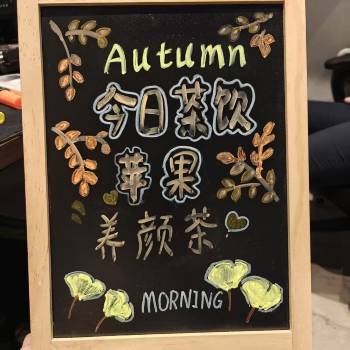 Autumn
今日茶饮
苹果
养颜茶
MORNING